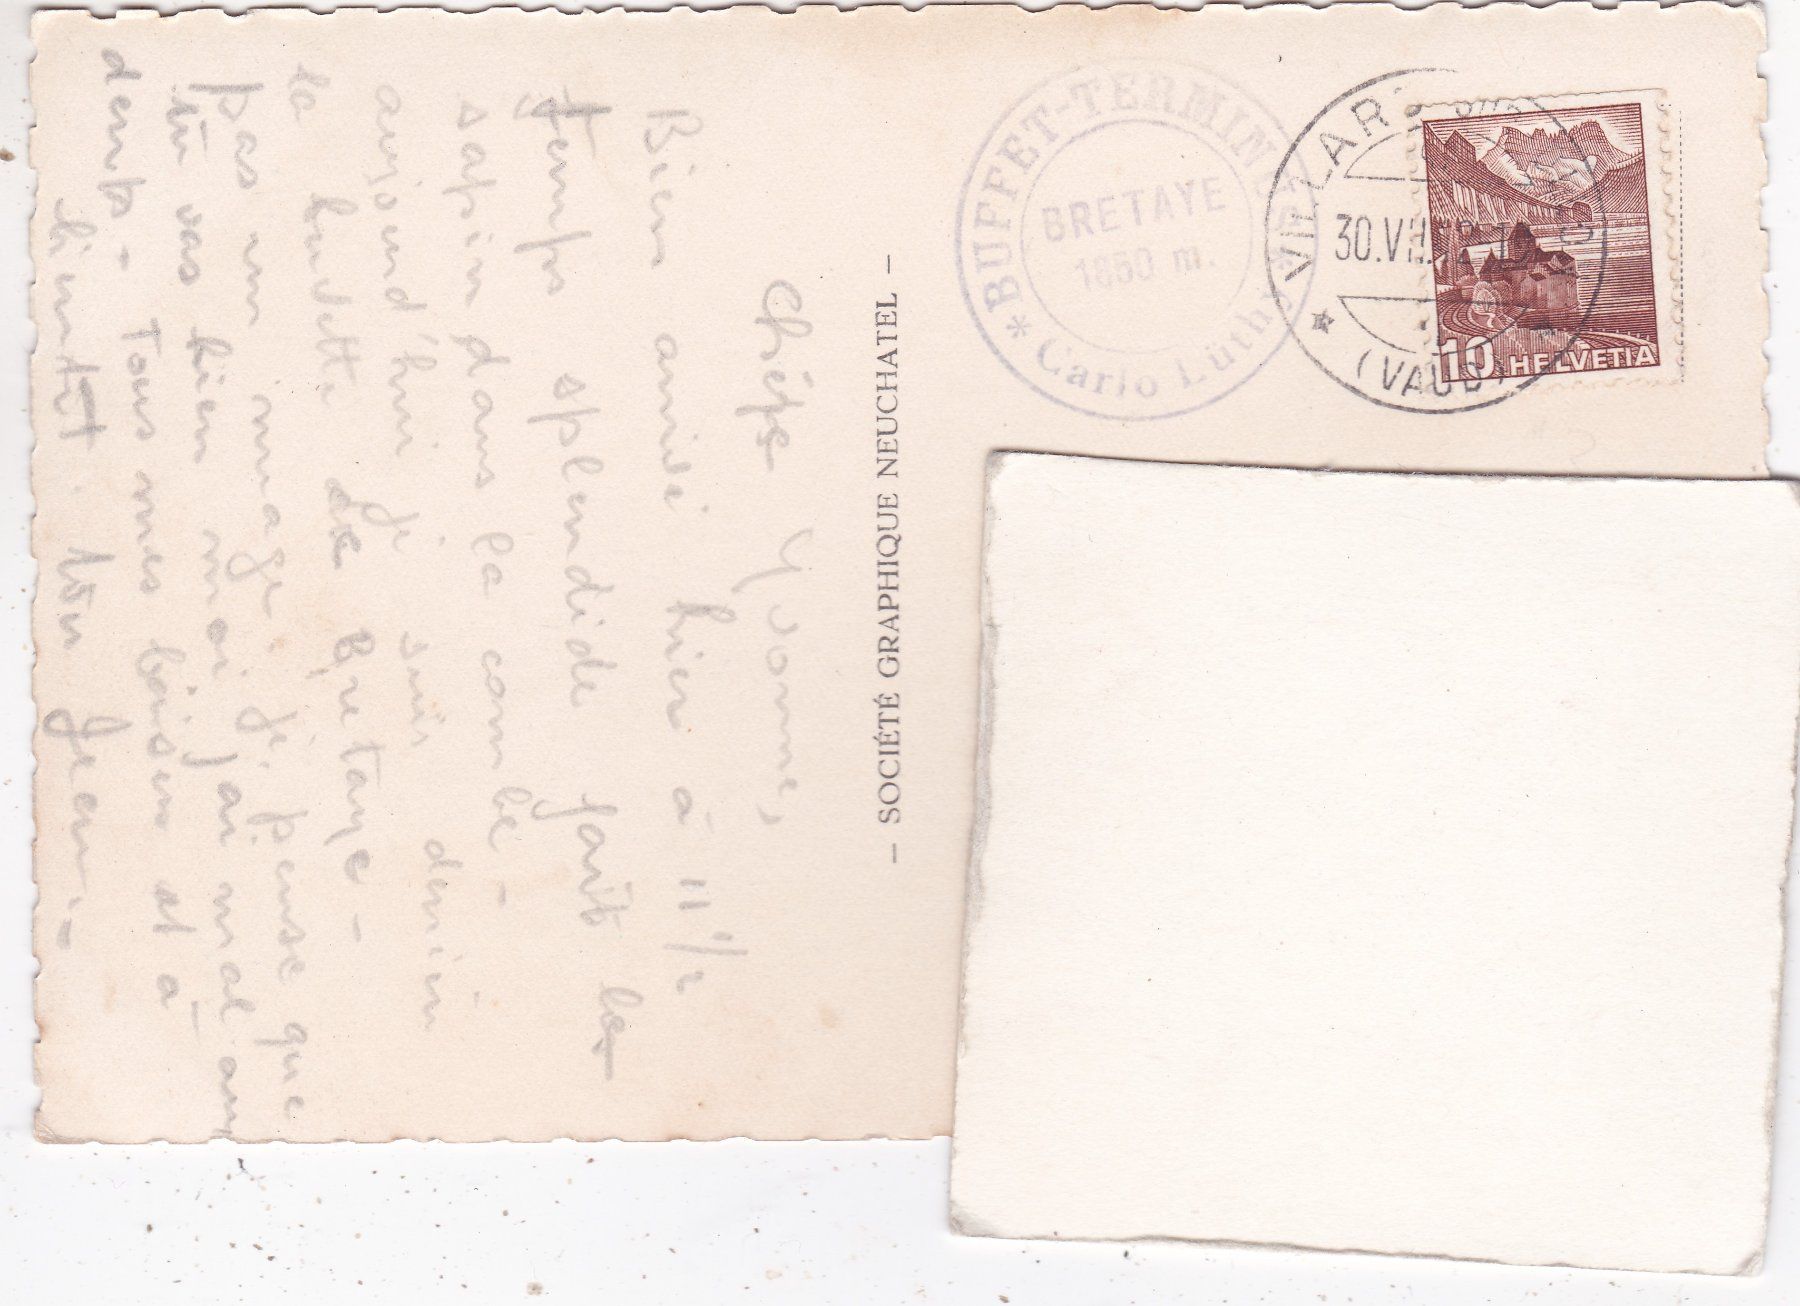 Chère Yvonne,
Bien arrivé hier à 11 1/2
temps splendide fait le
sapin dans la combe -
aujourd'hui je suis derrière
la buvette de Bretaye -
pas un nuage. je pense que
tu vas bien moi j'ai mal aux
dents - Tous mes baisers et à
bientôt. ton Jean. -
- SOCIÉTÉ GRAPHIQUE NEUCHATEL -
* BUFFET-TERMINUS *
BRETAYE
1850 m.
Carlo Lüthy
VILLARS
30.VII.
(VAUD)
10 HELVETIA